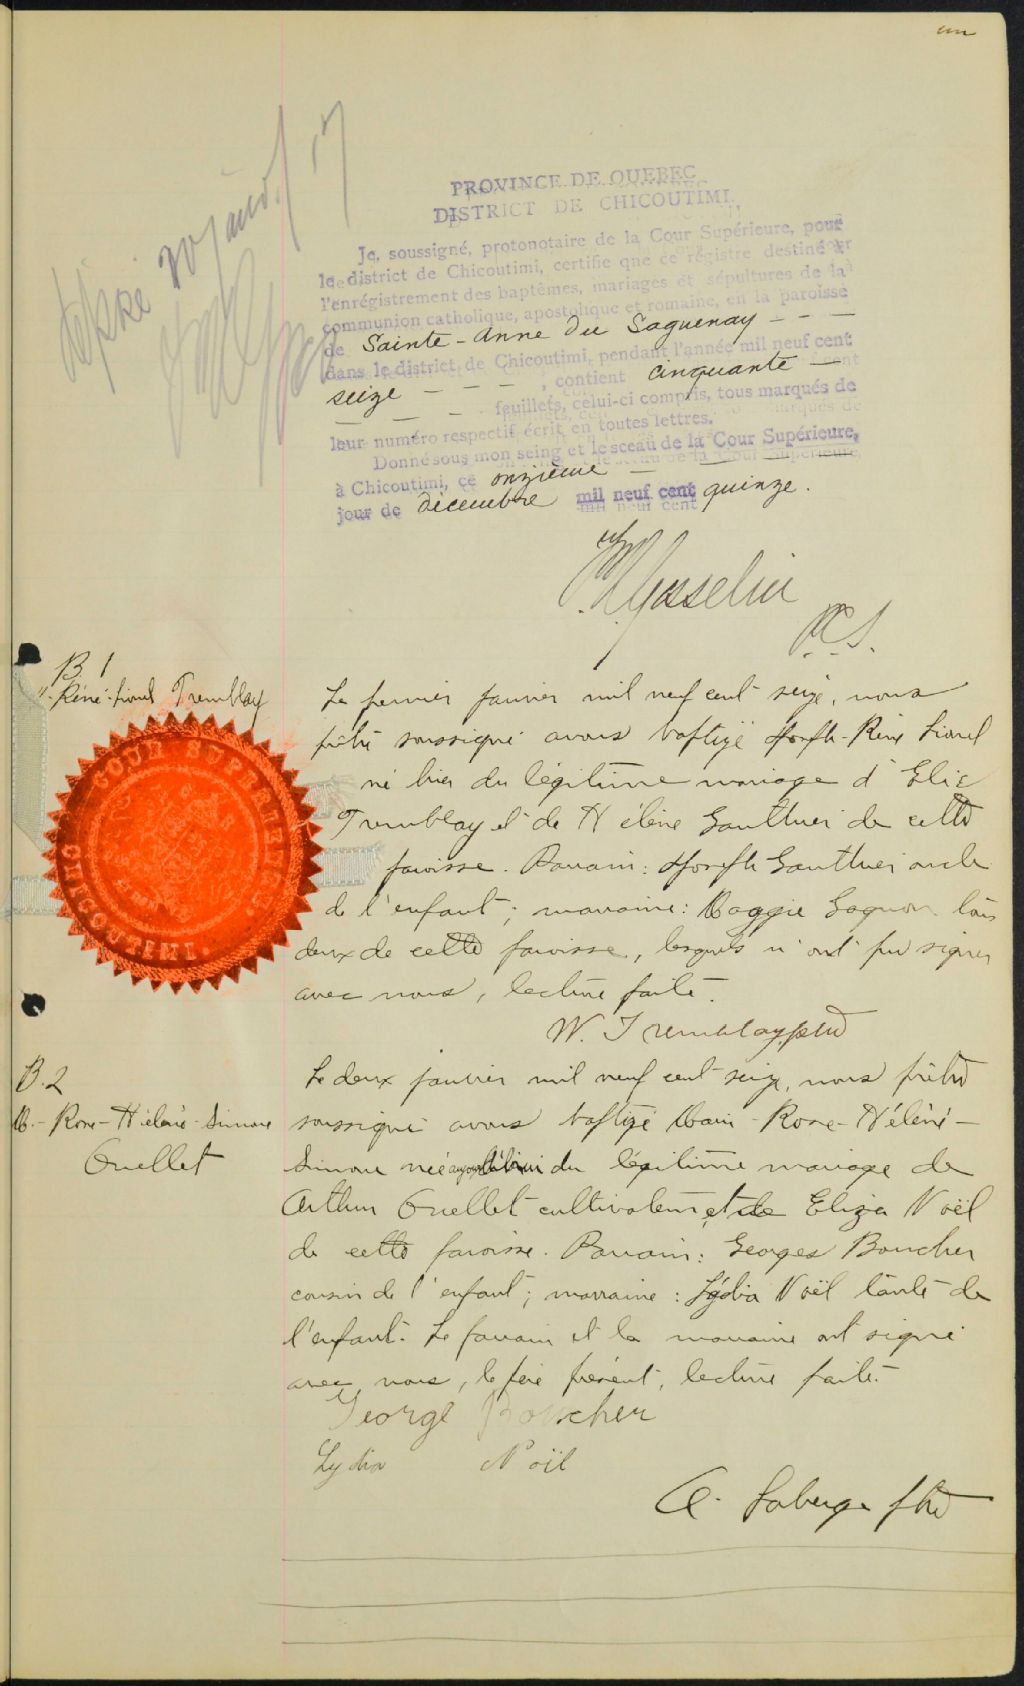 un
PROVINCE DE QUEBEC
DISTRICT DE CHICOUTIMI,
Je, soussigné, protonotaire de la Cour Supérieure, pour
le district de Chicoutimi, certifie que ce régistre destiné à
l'enrégistrement des baptêmes, mariages et sépultures de la
communion catholique, apostolique et romaine, en la paroisse
de Sainte-Anne du Saguenay - - -
dans le district de Chicoutimi, pendant l'année mil neuf cent
seize - - - , contient cinquante -
- - - feuillets, celui-ci compris, tous marqués de
leur numéro respectif écrit en toutes lettres.
Donné sous mon seing et le sceau de la Cour Supérieure,
à Chicoutimi, ce onzième -
jour de décembre mil neuf cent quinze.
Gosselin
P.C.S.
B 1
Réné-Lionel Tremblay
Le premier janvier mil neuf cent seize, nous
prêtre soussigné avons baptizé Joseph-Réné Lionel
né hier du légitime mariage d'Elie
Tremblay et de Hélène Gauthier de cette
paroisse. Parrain: Joseph Gauthier oncle
de l'enfant; marraine: Maggie Gagnon tous
deux de cette paroisse, lesquels n'ont pu signer
avec nous, lecture faite.
W. Tremblay, ptre
COUR SUPERIEURE
CHICOUTIMI.
B. 2
M.-Rose-Hélène-Simone
Ouellet
Le deux janvier mil neuf cent seize, nous prêtre
soussigné avons baptizé Marie-Rose-Hélène-
Simone née du légitime mariage de
Arthur Ouellet cultivateur et de Eliza Noël
de cette paroisse. Parrain: Georges Boucher
cousin de l'enfant; marraine: Lydia Noël tante de
l'enfant. Le parrain et la marraine ont signé
avec nous, le père présent, lecture faite.
George Boucher
Lydia Noël
A. Laberge ptre